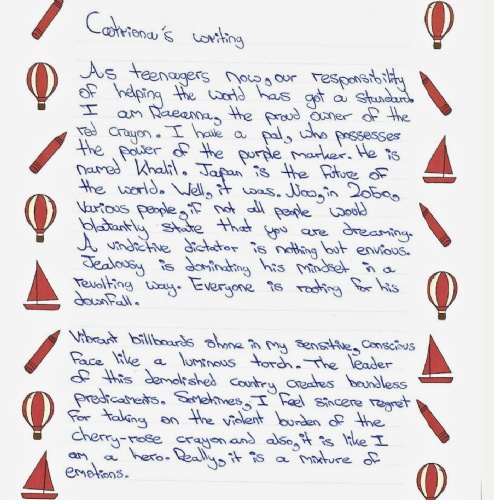 Catriona's writing
As teenagers now, our responsibility
of helping the world has got a standard.
I am Raeanna, the proud owner of the
red crayon. I have a pal, who possesses
the power of the purple marker. He is
named Khalil. Japan is the future of
the world. Well, it was. Now, in 2060,
various people, if not all people would
blatantly state that you are dreaming.
A vindictive dictator is nothing but envious.
Jealousy is dominating his mindset in a
revolting way. Everyone is rooting for his
downfall.
Vibrant billboards shone in my sensitive, conscious
face like a luminous torch. The leader
of this demolished country creates boundless
predicaments. Sometimes, I feel sincere regret
for taking on the violent burden of the
cherry-rose crayon and also, it is like I
am a hero. Really, it is a mixture of
emotions.